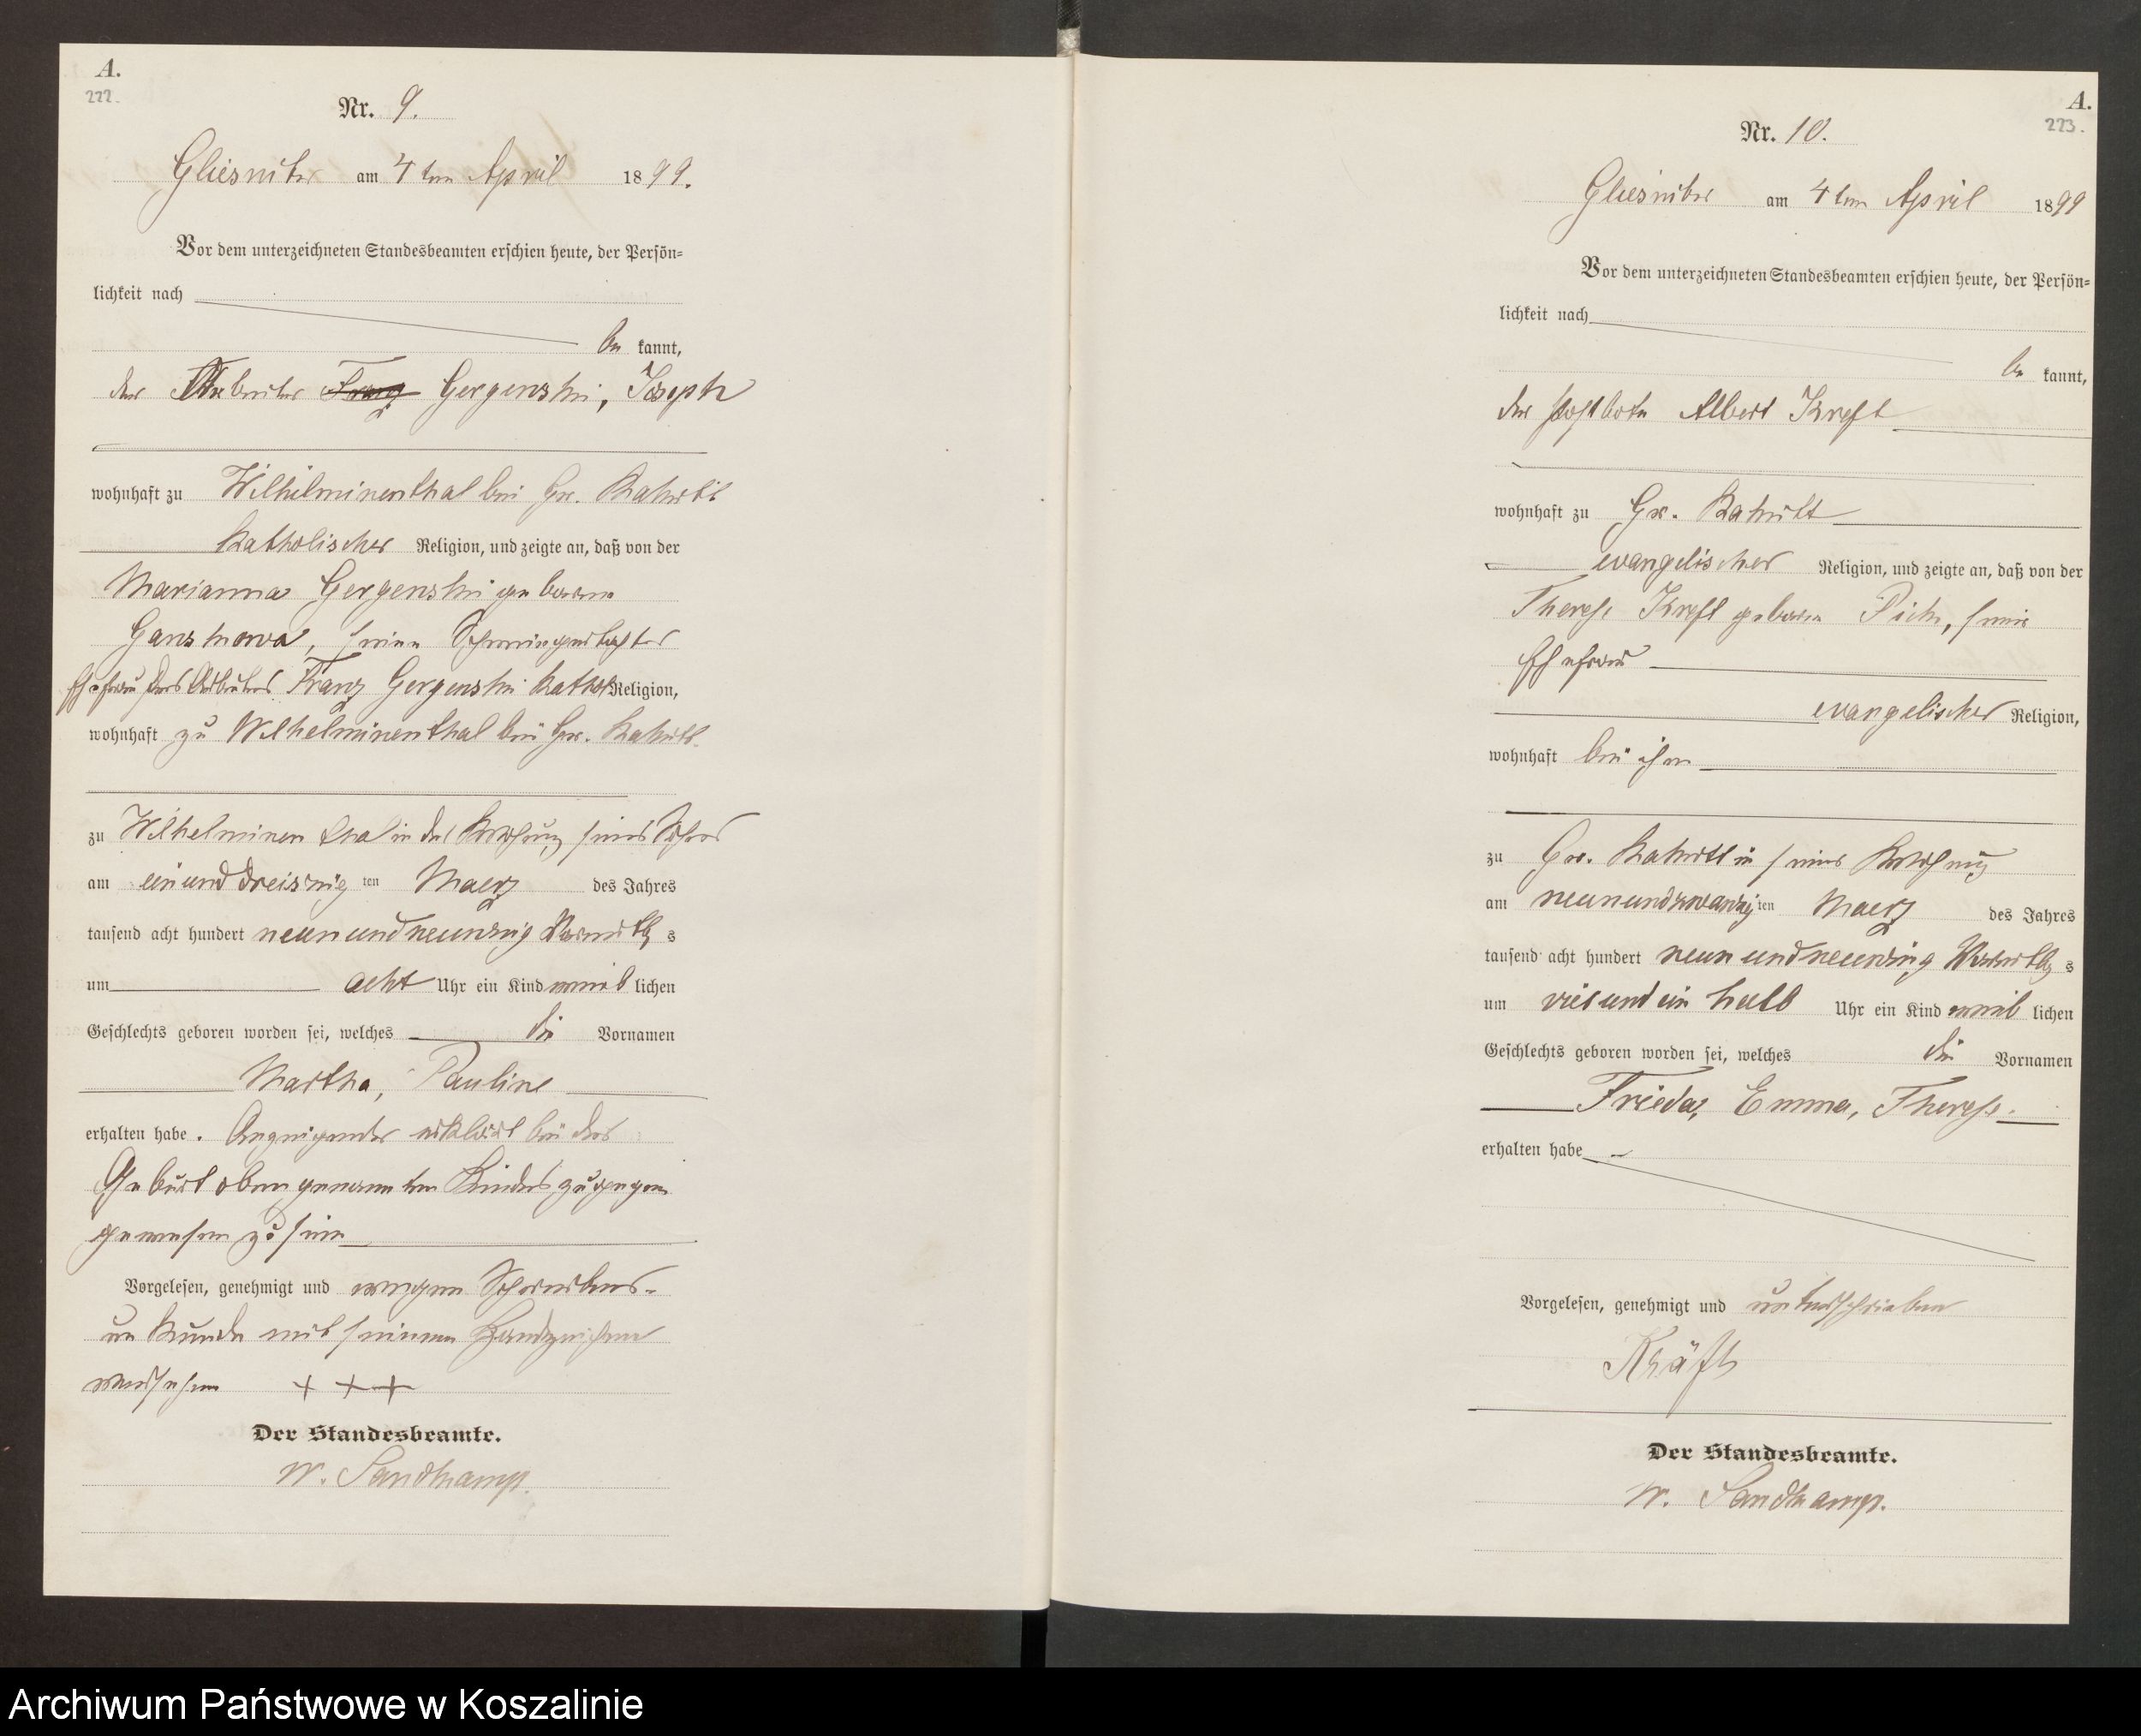 A.
222.
Nr. 9.
Gliesnitz am 4ten April 1899.
Vor dem unterzeichneten Standesbeamten erschien heute, der Persön=
lichkeit nach
be kannt,
der Arbeiter Franz Gergenski, Joseph
wohnhaft zu Wilhelminenthal bei Gr.
Katholischer Religion, und zeigte an, daß von der
Marianna Gergenski geborne
, seiner Schwiegertochter
Ehefrau des Arbeiters Franz Gergenski Kathol Religion,
wohnhaft zu Wilhelminenthal bei Gr.
zu Wilhelminenthal in der Wohnung seines Sohnes
am einunddreiszig ten Maerz des Jahres
tausend acht hundert neunundneunzig Vormittg s
um acht Uhr ein Kind weib lichen
Geschlechts geboren worden sei, welches die Vornamen
Martha, Pauline
erhalten habe. Anzeigender erklärt bei der
Geburt obengenannten Kindes zugegen
gewesen zu sein
Vorgelesen, genehmigt und wegen Schreibens-
unkunde mit seinem Handzeichen
versehen + + +
Der Standesbeamte.
W. Sandkamp.
A.
223.
Nr. 10.
Gliesnitz am 4ten April 1899
Vor dem unterzeichneten Standesbeamten erschien heute, der Persön=
lichkeit nach
be kannt,
der Postbote Albert Kreft
wohnhaft zu Gr.
evangelischer Religion, und zeigte an, daß von der
Therese Kreft geborne , seine
Ehefrau
evangelischer Religion,
wohnhaft bei ihm
zu Gr. in seiner Wohnung
am neunundzwanzig ten Maerz des Jahres
tausend acht hundert neunundneunzig Vormittg s
um vier und ein halb Uhr ein Kind weib lichen
Geschlechts geboren worden sei, welches die Vornamen
Frieda, Emma, Therese.
erhalten habe
Vorgelesen, genehmigt und unterschrieben
Kräft
Der Standesbeamte.
W. Sandkamp.
Archiwum Państwowe w Koszalinie